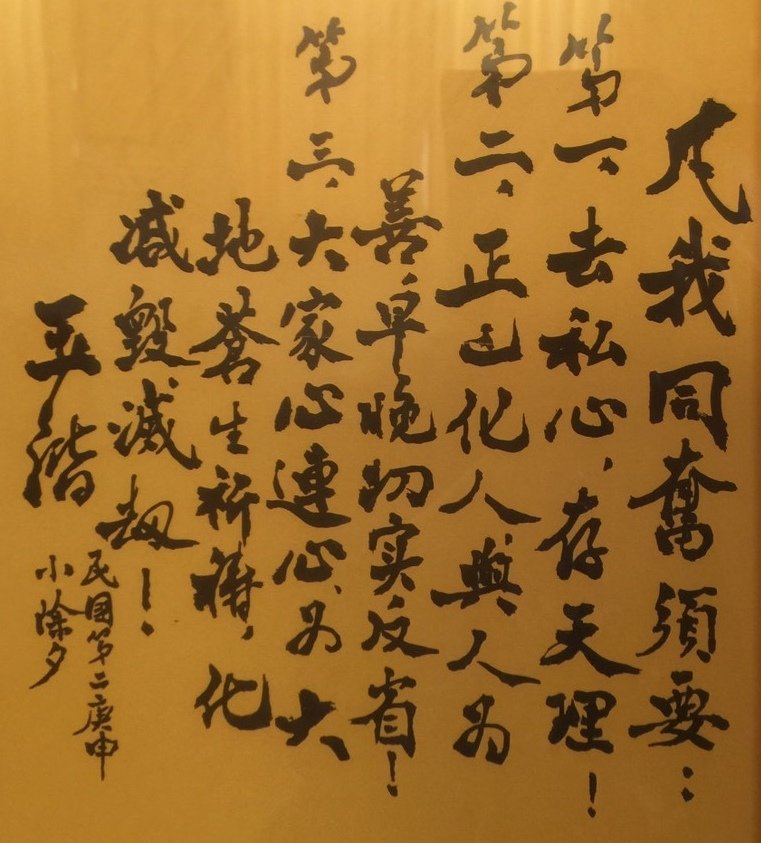 凡我同奮須要：
第一、去私心，存天理！
第二、正己化人與人为
善，早晚切实反省！
第三、大家心連心，为大
地蒼生祈禱，化
減毀滅劫！
玉階
民国第二庚申
小除夕